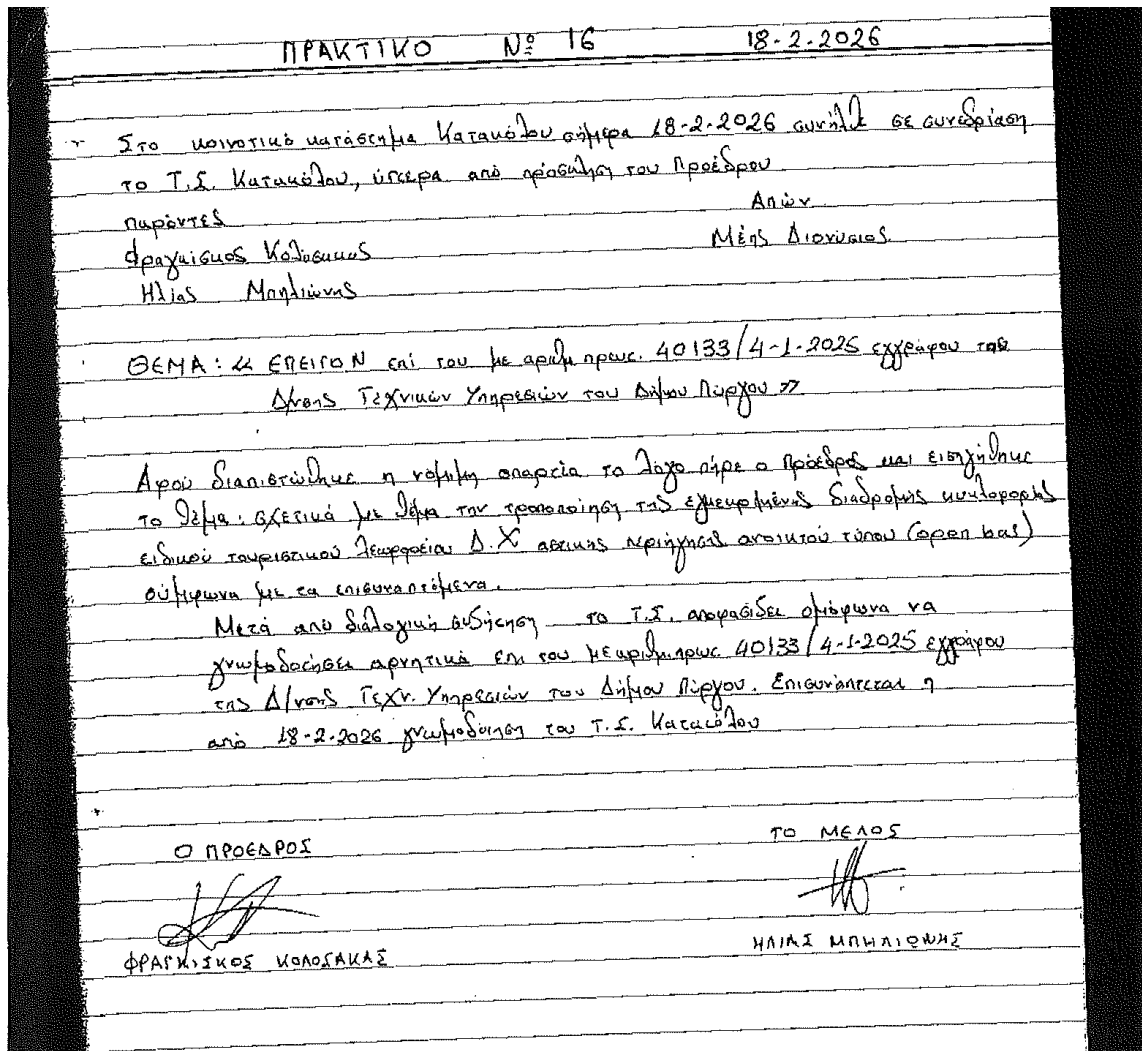 ΠΡΑΚΤΙΚΟ Nº 16 18-2-2026
Στο κοινοτικό κατάστημα Κατακόλου σήμερα 18-2-2026 συνήλθε σε συνεδρίαση
το Τ.Σ. Κατακόλου, ύστερα από πρόσκληση του Προέδρου
παρόντες Απών
Φραγκίσκος Κολοσακας Μέης Διονύσιος
Ηλίας Μπηλιώνης
ΘΕΜΑ: << ΕΠΕΙΓΟΝ επί του με αριθμ πρωτ. 40133/4-1-2025 εγγράφου της
Δ/νσης Τεχνικών Υπηρεσιών του Δήμου Πύργου >>
Αφού διαπιστώθηκε η νόμιμη απαρτία το λόγο πήρε ο Πρόεδρος και εισηγήθηκε
το θέμα: σχετικά με θέμα την τροποποίηση της εγκεκριμένης διαδρομής κυκλοφορίας
ειδικού τουριστικού λεωφορείου Δ.Χ αστικής περιήγησης ανοικτού τύπου (open bus)
σύμφωνα με τα επισυναπτόμενα.
Μετά από διαλογική συζήτηση το Τ.Σ. αποφασίζει ομόφωνα να
γνωμοδοτήσει αρνητικά επι του με αριθμ. πρωτ. 40133/4-1-2025 εγγράφου
της Δ/νσης Τεχν. Υπηρεσιών του Δήμου Πύργου. Επισυνάπτεται η
από 18-2-2026 γνωμοδότηση του Τ.Σ. Κατακόλου
Ο ΠΡΟΕΔΡΟΣ ΤΟ ΜΕΛΟΣ
ΦΡΑΓΚΙΣΚΟΣ ΚΟΛΟΣΑΚΑΣ ΗΛΙΑΣ ΜΠΗΛΙΩΝΗΣ